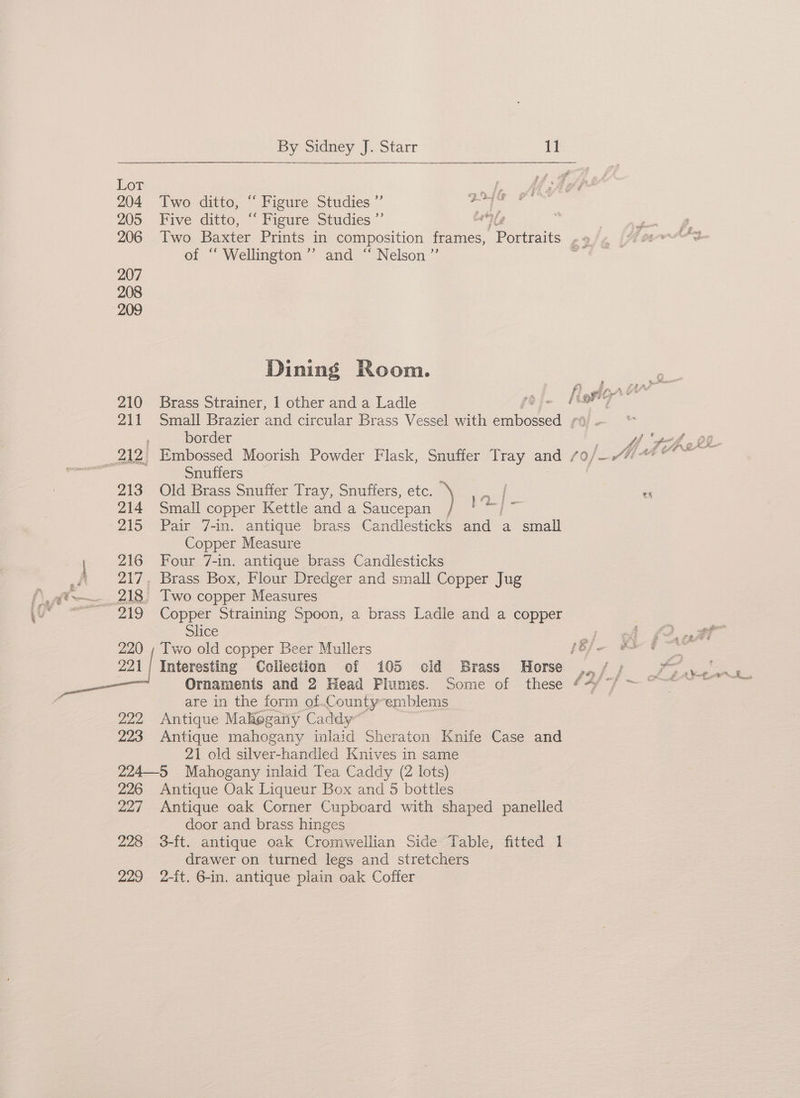 By Sidney J. Starr 11
LOT
204 Two ditto, “ Figure Studies ”
205 Five ditto, “ Figure Studies ”
206 Two Baxter Prints in composition frames, Portraits
of “ Wellington ” and “ Nelson ”
207
208
209
Dining Room.
210 Brass Strainer, 1 other and a Ladle
211 Small Brazier and circular Brass Vessel with embossed
border
212 Embossed Moorish Powder Flask, Snuffer Tray and
Snuffers
213 Old Brass Snuffer Tray, Snuffers, etc.
214 Small copper Kettle and a Saucepan
215 Pair 7-in. antique brass Candlesticks and a small
Copper Measure
216 Four 7-in. antique brass Candlesticks
217. Brass Box, Flour Dredger and small Copper Jug
218 Two copper Measures
219 Copper Straining Spoon, a brass Ladle and a copper
Slice
220 Two old copper Beer Mullers 18/-
221 Interesting Collection of 105 old Brass Horse
Ornaments and 2 Head Plumes. Some of these
are in the form of County emblems
222 Antique Mahogany Caddy
223 Antique mahogany inlaid Sheraton Knife Case and
21 old silver-handled Knives in same
224—5 Mahogany inlaid Tea Caddy (2 lots)
226 Antique Oak Liqueur Box and 5 bottles
227 Antique oak Corner Cupboard with shaped panelled
door and brass hinges
228 3-ft. antique oak Cromwellian Side Table, fitted 1
drawer on turned legs and stretchers
229 2-ft. 6-in. antique plain oak Coffer